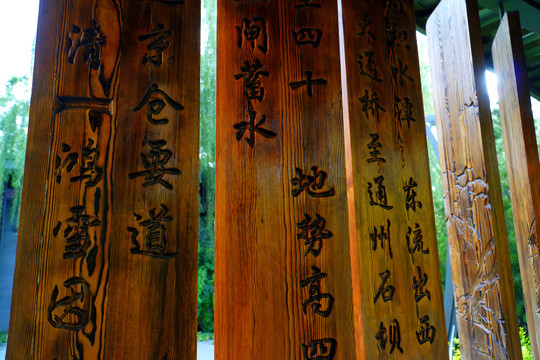 积水潭、东流出西
大通桥至通州石坝
四十 地势高四
闸蓄水
京仓要道
清《鸿雪因